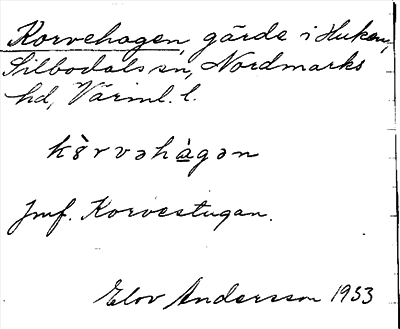 Korvehagen, gärde i Huken,
Silbodals sn, Nordmarks
hd, Värml. l.
Jmf. Korvestugan.
Elov Andersson 1933